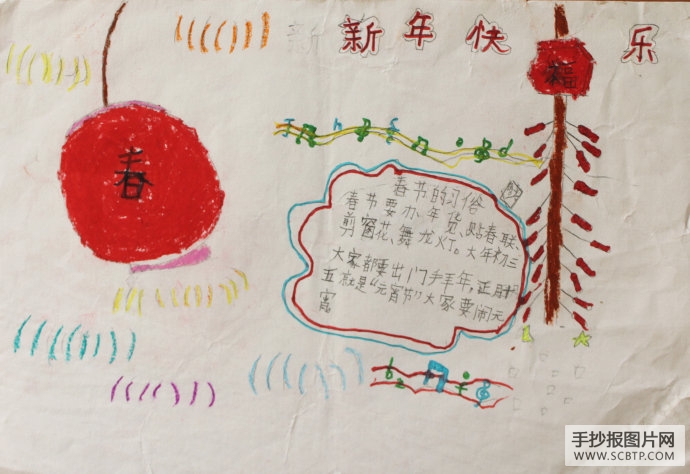 新年快乐
福
春
春节的习俗
春节要办年货、贴春联、
剪窗花、舞龙灯。大年初三
大家都要出门拜年,正月十
五就是“元宵节”大家要闹元
宵
手抄报图片网
WWW.SCBTP.COM